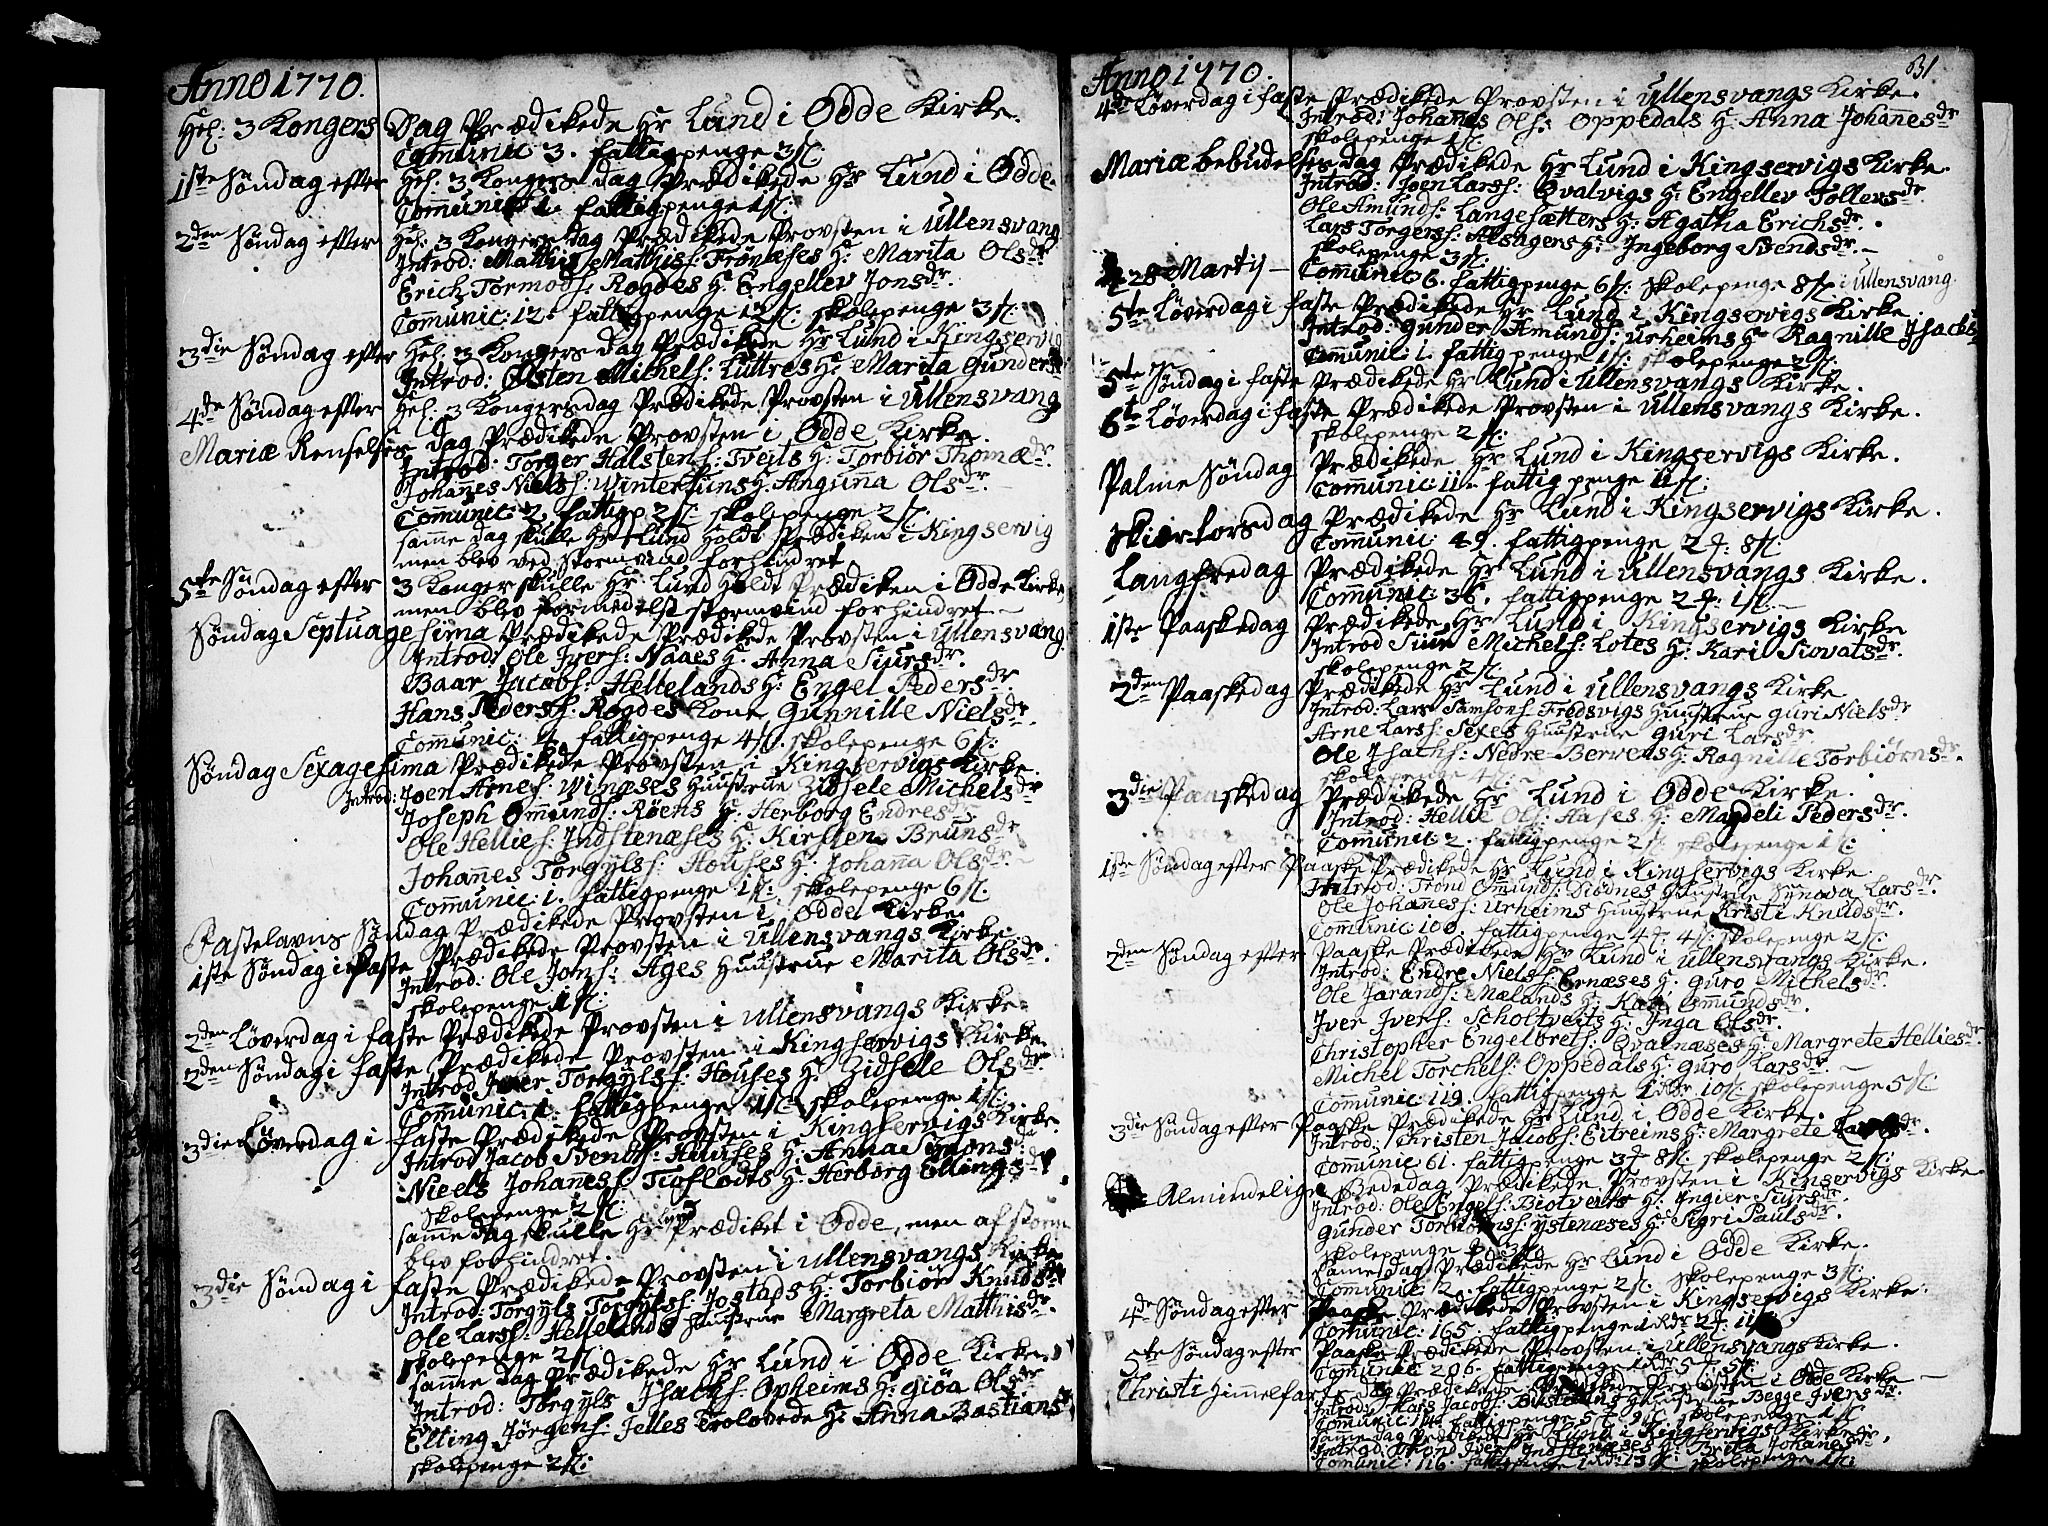 Anno 1770.
Hel: 3 Kongers Dag Prædikede Hr Lund i Odde Kirke.
Communic 3. fattigpenge 3 sk:
1ste Søndag efter Hel. 3 Kongers dag Prædikede Hr Lund i Odde.
Communic 1. fattigpenge 1 sk:
2den Søndag efter Hel: 3 Kongers dag Prædikede Provsten i Ullensvang
Introd: Mathis Mathis: Trønæses H: Marita Olsdr
Erich Tormods: Rogdes H: Engellev Jonsdr.
Communic: 12. fattigpenge 12 sk: skolepenge 3 sk:
3die Søndag efter Hel. 3 Kongers Dag Prædikede Hr Lund i Kingservig
Introd: Østen Michels: Luttres H: Marita Gundersdr
4de Søndag efter Hel: 3 Kongersdag Prædikede Provsten i Ullensvang
Mariæ Renselses dag Prædikede Provsten i Odde Kirke.
Introd: Torger Halstens: Tveits H: Torbiør Thomædr.
Johannes Niels: Wintertuns H. Angunna Olsdr.
Communic: 2. fattigp 2 sk: skolepenge 2 sk.
samme dag skulle Hr Lund holdt Prædiken i Kingservig
men blev ved Stormvind forhindret
5te Søndag efter 3 Konger skulle Hr Lund Holdt Prædiken i Odde Kirke,
men blev formedelst stormvind forhindret
Søndag Septuagesima Prædikede Prædikede Provsten i Ullensvang.
Introd: Ole Ivers: Naaes H: Anna Siursdr.
Baar Jacobs: Hellelands H: Engel Pedersdr
Hans Peders: Rogdes Kone Gunnille Nielsdr.
Communic: 4. fattigpenge 4 sk. skolepenge 6 sk:
Søndag Sexagesima Prædikede Provsten i Kingservigs Kirke.
Introd: Joen Arnes: Winæses Huustrue Zidsele Michelsdr
Joseph Omunds: Røens H: Herborg Endresdr
Ole Hellies: Indstenæses H: Kirsten Brunsdr
Johannes Torgyls: Houses H: Johanna Olsdr.
Communic: 1. fattigpenge 1 sk: skolepenge 6 sk.
Fastelavns Søndag Prædikede Provsten i Odde Kirke.
1ste Søndag i Faste Prædikede Provsten i Ullensvangs Kirke
Introd: Ole Jons: Ages Huustrue Marita Olsdr.
skolepenge 1 sk:
2den Løverdag i faste Prædikede Provsten i Ullensvangs Kirke
2den Søndag i faste Prædikede Provsten i Kingservigs Kirke.
Introd Iver Torgyls: Houses H: Zidsele Olsdr.
Communic: 1. fattigpenge 1 sk: skolepenge 1 sk:
3die Løverdag i faste Prædikede Provsten i Kingservigs Kirke.
Introd Jacob Svends: Houses H: Anna Simonsdr
Nieels Johanes: Tioflodts H: Herborg Ellingsdr
skolepenge 2 sk:
samme dag skulle Hr Lund Prædiket i Odde, men af storm
blev forhindret.
3die Søndag i faste Prædikede Provsten i Ullensvangs Kirke
Introd: Torgyls Torgyls: Jostads H: Torbiør Knudsdr
Ole Lars: Hellelands Huustrue Margreta Matthisdr.
skolepenge 2 sk:
samme dag Prædikede Hr Lund i Odde Kirke.
Introd: Torgyls Isachs: Opheims H: Giøa Olsdr
Elling Jørgens: Jelles Trolovede H: Anna Bastiansdr
skolepenge 2 sk:
Anno 1770.
31
4de Løverdag i faste Prædikede Provsten i Ullensvangs Kirke.
Introd: Johanes Ols: Oppedals H: Anna Johannesdr
skolepenge 1 sk:
Mariæ bebudelses dag Prædikede Hr Lund i Kingservigs Kirke.
Introd: Joen Lars: Qvalvigs H: Engellev Tollersdr.
Ole Amunds: Langesætters H: Agatha Erichsdr.
Lars Torgers: Alsagers H: Ingeborg Svendsdr.
skolepenge 3 sk:
28 Martij Communic 6. fattigpenge 6 sk: skolepenge 8 sk i Ullensvang.
5te Løverdag i faste Prædikede Hr Lund i Kingservigs Kirke.
Introd: Gunder Amunds: Urheims H: Ragnille Isachsdr
Communic: 1. fattigpenge 1 sk: skolepenge 2 sk.
5te Søndag i faste Prædikede Hr Lund i Ullensvangs Kirke.
6te Løverdag i faste Prædikede Provsten i Ullensvangs Kirke.
skolepenge 2 sk:
Palme Søndag Prædikede Hr Lund i Kingservigs Kirke.
Communic: 11. fattigpenge 11 sk:
Skiær-torsdag Prædikede Hr Lund i Kingservigs Kirke.
Communic: 49. fattigpenge 2 : 8 sk
Langfredag Prædikede Hr Lund i Ullensvangs Kirke.
Communic: 36. fattigpenge 2 : 1 sk.
1ste Paaskedag Prædikede Hr Lund i Kingservigs Kirke
Introd Siur Michels: Lotes H: Kari Siovatsdr.
skolepenge 2 sk.
2den Paaskedag Prædikede Hr Lund i Ullensvangs Kirke
Introd: Lars Samsons: Fresvigs Huustrue Guri Nielsdr
Arne Lars: Sexes Huustrue Guri Larsdr
Ole Isachs: Nedre-Berve H: Ragnille Torbiørnsdr.
skolepenge 4 sk.
3die Paaskedag Prædikede Hr Lund i Odde Kirke.
Introd: Hellie Ols: Hases H: Magdeli Pedersdr.
Communic 2. fattigpenge 2 sk skolepenge 1 sk:
1ste Søndag efter Paaske Prædikede Hr Lund i Kingservigs Kirke.
Introd: Trond Omunds: Diødnes Huustrue Synova Larsdr.
Ole Johanes: Urheims Huustrue Kristi Knudsdr.
Communic 100. fattigpenge 4 4 sk: skolepenge 2 sk:
2den Søndag efter Paaske Prædikede Hr Lund i Ullensvangs Kirke.
Introd: Endre Niels: Ernæses H: Guro Michelsdr.
Ole Jarands: Mælands H: Kari Omundsdr.
Iver Ivers: Scholtveits H: Inga Olsdr.
Christopher Engelbrets: Qvalnæses H: Margrete Helliesdr.
Michel Torchels: Oppedals H: Guro Larsdr.
Communic: 119. fattigpenge 1 Rdr 10 sk. skolepenge 5 sk
3die Søndag efter Paaske Prædikede Hr Lund i Odde Kirke.
Introd: Christen Jacobs: Eitreims H: Margrete dr.
Communic 61. fattigpenge 3 8 sk: skolepenge 2 sk:
Almindelige Bededag Prædikede Provsten i Kinservigs Kirke
Introd: Ole Engels: Biotveits H: Ingier Siursdr.
Gunder Torbiørns: Ystenæses H: Sigri Paulsdr.
skolepenge 3 sk
Samesdag Prædikede Hr Lund i Odde Kirke.
Communic 12. fattigpenge 2 sk. skolepenge 3 sk:
4de Søndag efter Paaske Prædikede Provsten i Kingservigs Kirke.
Communic: 165. fattigpenge 1 Rdr 2 11
5te Søndag efter Paaske Prædikede Provsten i Ullensvangs Kirke.
Communic 206. fattigpenge 1 Rdr 5 5 sk:
Christi Himmelfarts dag Prædikede Provsten i Odde Kirke
Introd: Lars Jacobs: Huustrue Begge Iversdr.
Communic 141 fattigpenge 5 9 sk. skolepenge 1 sk
samme dag Prædikede Hr Lund i Kingservigs Kirke
Introd: Trond Ivers: Indstenæses H: Brita Johanesdr.
Communic: 116. fattigpenge 1 Rdr 13 sk skolepenge 1 sk: